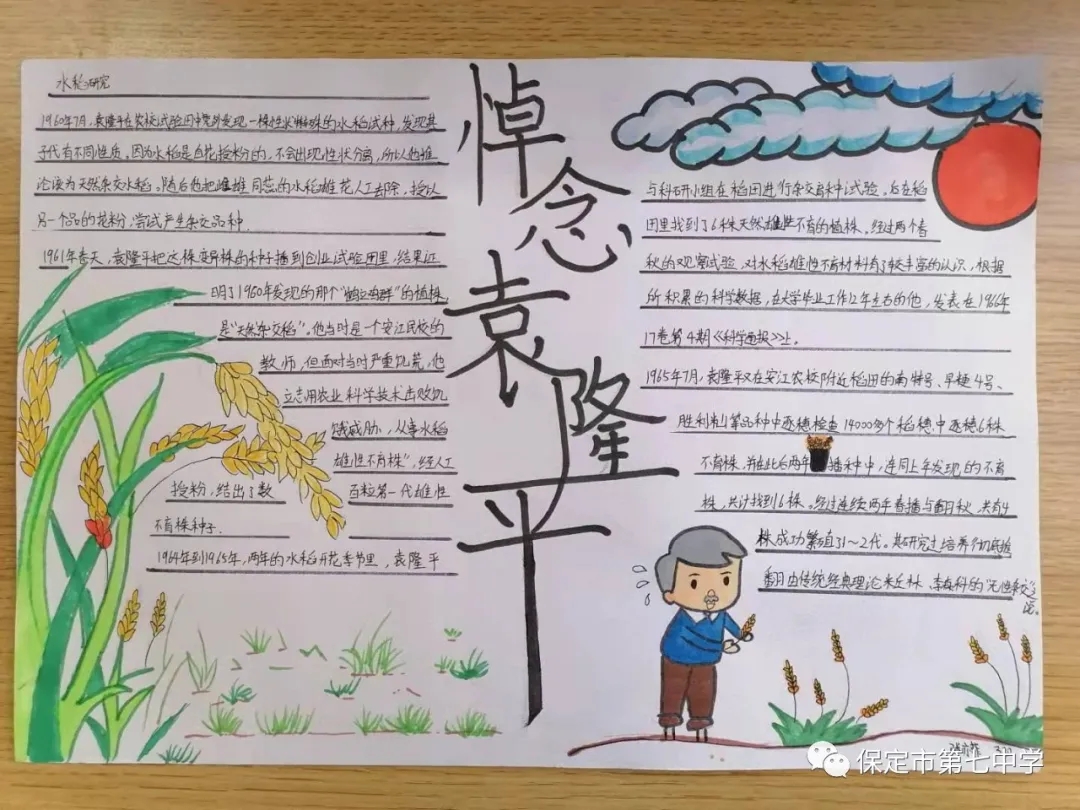 水稻研究
1960年7月,袁隆平在农校试验田中意外发现一株性状特殊的水稻试种,发现其
子代有不同性质。因为水稻是自花授粉的,不会出现性状分离,所以他推
论该为天然杂交水稻。随后他把雌雄同蕊的水稻雄花人工去除,授以
另一个品的花粉,尝试产生杂交品种
1961年春天,袁隆平把这株变异株的种子播到创业试验田里,结果证
明了1960年发现的那个“鹤立鸡群”的植株
是“天然杂交稻”。他当时是一个安江农校的
教师,但面对当时严重饥荒,他
立志用农业科学技术击败饥
饿威胁,从事水稻
雄性不育株”,经人工
授粉,结出了数
百粒第一代雄性
不育株种子.
1964年到1965年,两年的水稻开花季节里,袁隆平
悼念袁隆平
与科研小组在稻田进行杂交育种试验。后在稻
田里找到了6株天然雄性不育的植株。经过两个春
秋的观察试验,对水稻雄性不育材料有了较丰富的认识,根据
所积累的科学数据,在大学毕业工作12年左右的他,发表在1966年
17卷第4期《科学通报》上。
1965年7月,袁隆平又在安江农校附近稻田的南特号、早粳4号、
胜利籼等品种中逐穗检查14000多个稻穗中逐穗6株
不育株,并在此后两年 播种中,连同上年发现的不育
株,共计找到6株。经过连续两年春播与翻秋,共有4
株成功繁殖了1~2代。其研究过培养个
翻由传统经典理论米丘林、李森科的“无性杂交”
说。
3.22
保定市第七中学